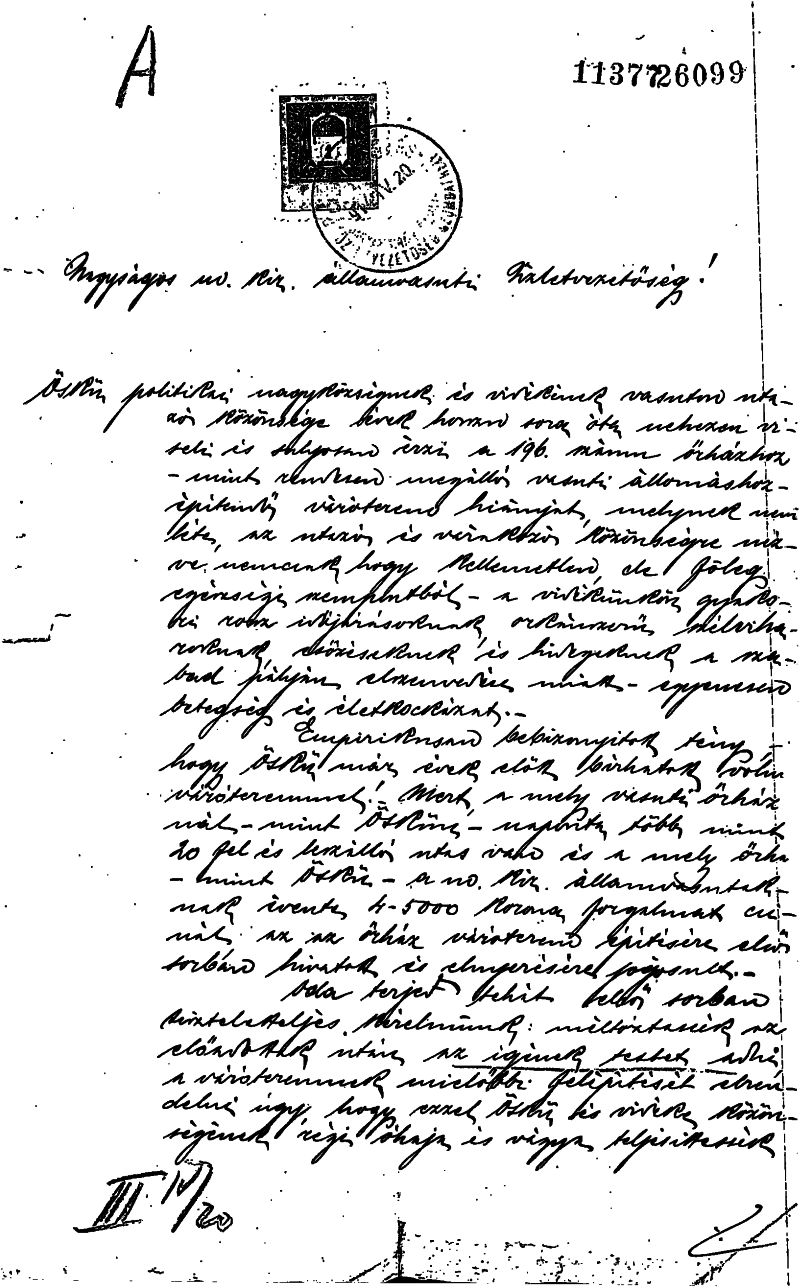 A
1137726099
IV. 20.
Nagyságos m. kir. államvasuti Üzletvezetőség!
Öskü politikai nagyközségnek és vidékének vasuton uta-
zó közönsége évek hosszu sora óta nehezen vi-
seli és sulyosan érzi a 196. számu őrházhoz
- mint rendesen megálló vasuti állomáshoz -
építendő váróterem hiányát, melynek nem
léte, az utazó és várakozó közönségre néz-
ve, nemcsak hogy kellemetlen de főleg
egészségi szempontból - a vidékünkön gyako-
ri rossz időjárásoknak, orkánszerü szélviha-
roknak, esőzéseknek és hidegeknek a sza-
bad pályán elszenvedése miatt - egyenesen
betegség és életkockázat.-
Empirikusan bebizonyított tény,-
hogy Öskü már évek előtt bírhatott volna
váróteremmel! Mert a mely vasuti őrház
nál - mint Öskün - naponta több mint
20 fel és leszálló utas van és a mely őrház
- mint Öskü - a m. kir. államvasutak-
nak évente 4-5000 korona forgalmat csi-
nál, az az őrház váróterem építésére első
sorban hivatott és elnyerésére jogosult.-
Oda terjed tehát első sorban
tiszteletteljes kérelmünk: méltóztassék az
előadottak után az igének testet adni
a váróteremnek mielőbbi felépítését elren-
delni ugy, hogy ezzel Öskü és vidéke közön-
ségének régi óhaja és vágya teljesíttessék
III IV/20